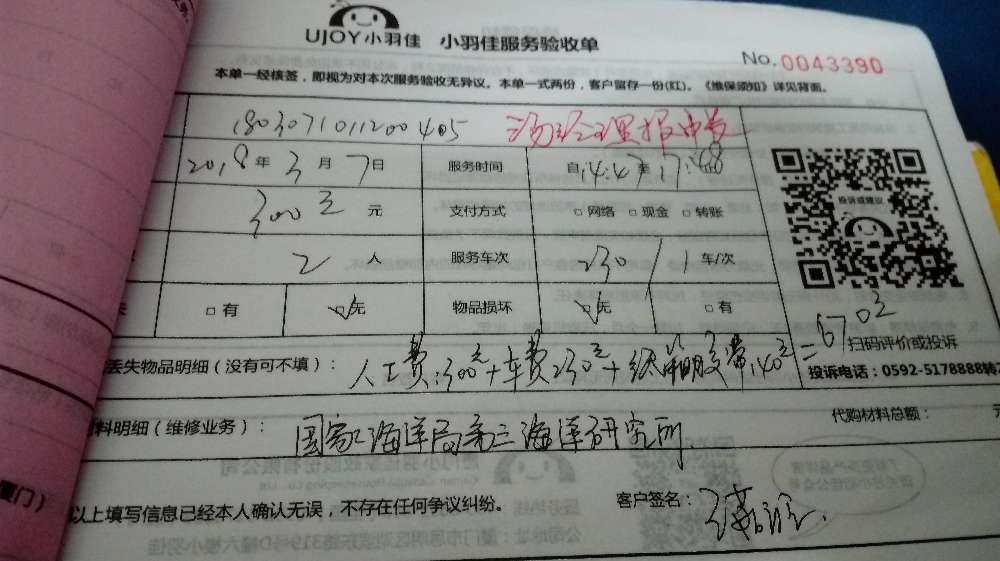 UJOY小羽佳 小羽佳服务验收单
No.0043390
本单一经核签，即视为对本次服务验收无异议。本单一式两份，客户留存一份(红)。《维保须知》详见背面。
180307101200405
2018年3月7日 服务时间 自14:47至17:48
300元 元 支付方式 □网络 □现金 □转账
投诉或建议
2人 服务车次 230/1车/次
□有 □无 物品损坏 □无 □有
=670元
扫码评价或投诉
丢失物品明细（没有可不填）： 人工费:300元+车费230元+纸箱胶带140元
投诉电话：0592-5178888转
料明细（维修业务）： 国家海洋局第三海洋研究所
代购材料总额： 元
以上填写信息已经本人确认无误，不存在任何争议纠纷。
客户签名：